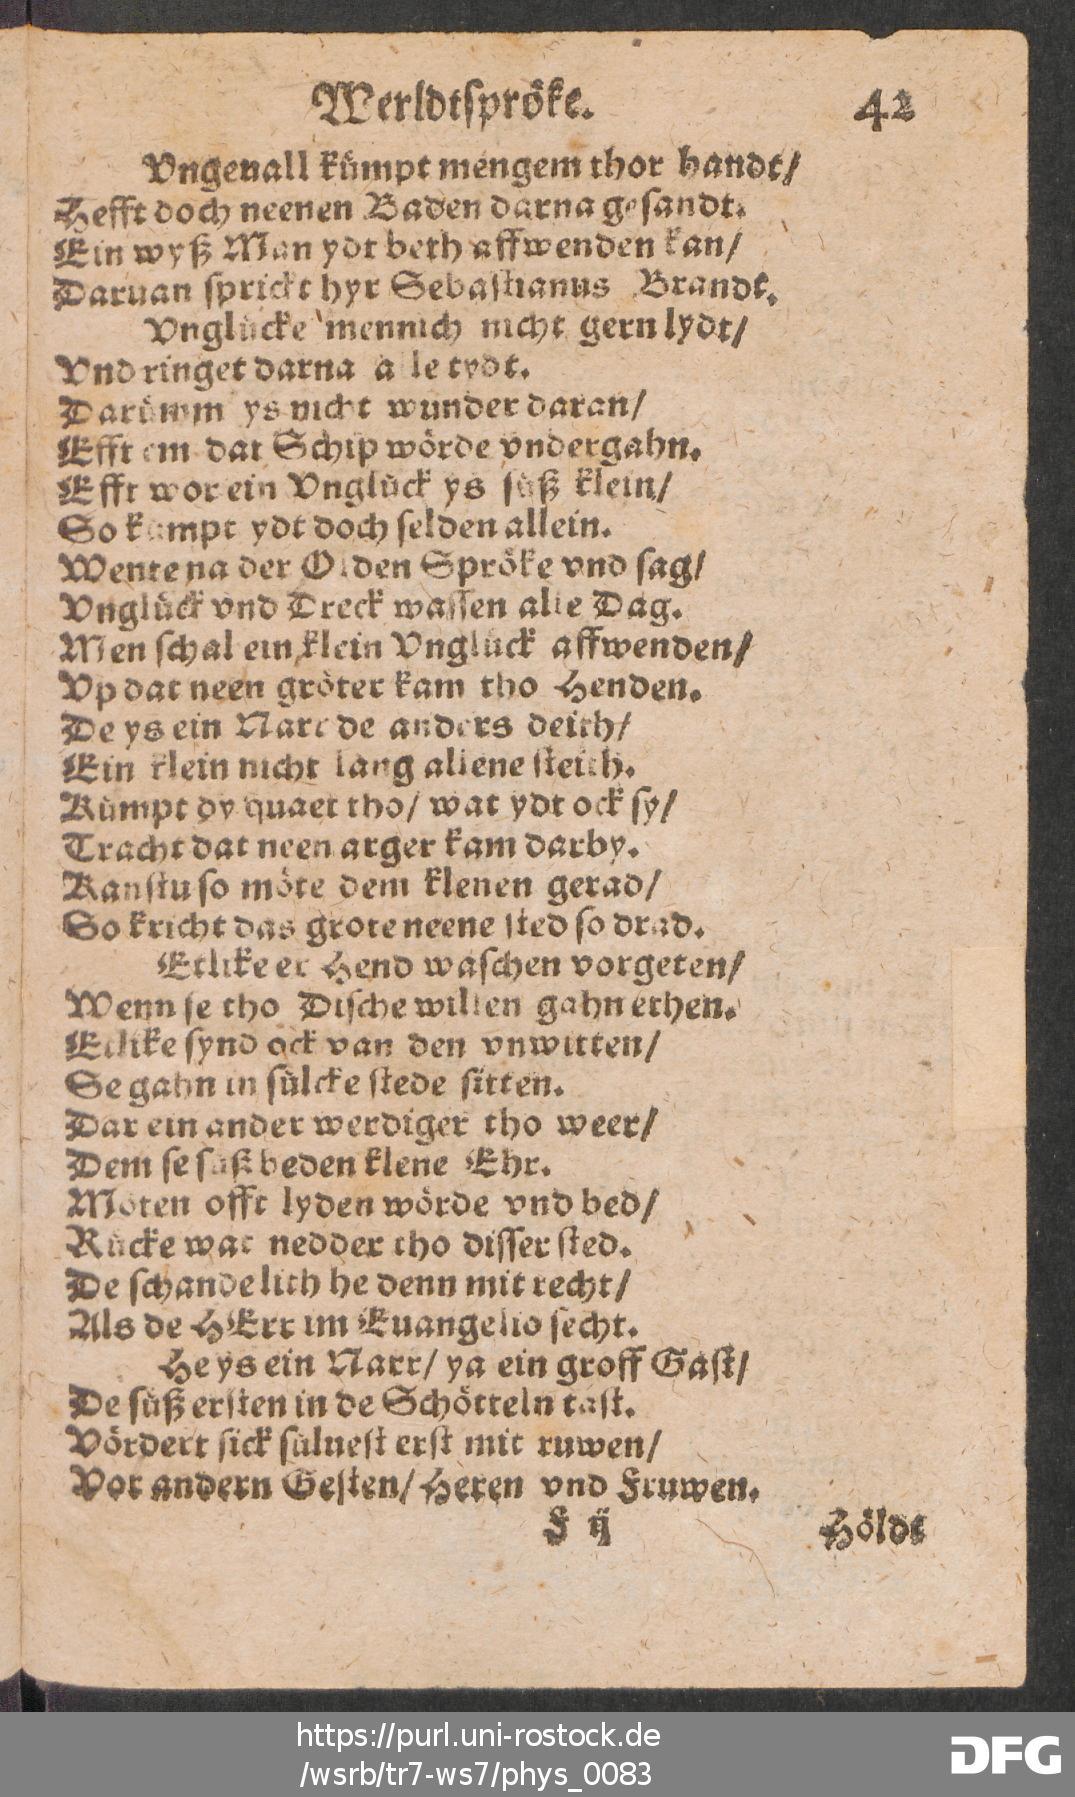 Werldtspröke. 42
Vngenall kümpt mengem thor handt/
Hefft doch neenen Baden darna gesandt.
Ein wyß Man ydt beth affwenden kan/
Daruan sprickt hyr Sebastianus Brandt.
Vnglücke mennich nicht gern lydt/
Vnd ringet darna alle tydt.
Darümm ys nicht wunder daran/
Efft em dat Schip wörde vndergahn.
Efft wor ein Vnglück ys süß klein/
So kümpt ydt doch selden allein.
Wente na der Olden Spröke vnd sag/
Vnglück vnd Dreck wassen alle Dag.
Men schal ein klein Vnglück affwenden/
Vp dat neen gröter kam tho Henden.
De ys ein Narr de anders deith/
Ein klein nicht lang allene steith.
Kümpt dy quaet tho/ wat ydt ock sy/
Tracht dat neen arger kam darby.
Kanstu so möte dem klenen gerad/
So kricht das grote neene sted so drad.
Etlike er Hend waschen vorgeten/
Wenn se tho Dische willen gahn ethen.
Etlike synd ock van den vnwitten/
Se gahn in sülcke stede sitten.
Dar ein ander werdiger tho weer/
Dem se süß beden klene Ehr.
Möten offt lyden wörde vnd bed/
Rücke wat nedder tho disser sted.
De schande lith he denn mit recht/
Als de HErr im Euangelio secht.
He ys ein Narr/ ya ein groff Gast/
De süß ersten in de Schötteln tast.
Vördert sick süluest erst mit ruwen/
Vor andern Gesten/ Heren vnd Fruwen.
F ij Höldt
https://purl.uni-rostock.de
/wsrb/tr7-ws7/phys_0083
DFG